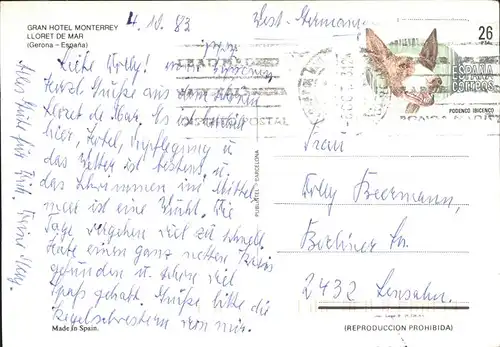 GRAN HOTEL MONTERREY
LLORET DE MAR
(Gerona - España)
4.10.83
West-Germany
26
ESPAÑA
CORREOS
PODENCO IBICENCO
Liebe
Herzl. Grüße aus dem schönen
Lloret de Mar. Es ist
hier, Hotel, Verpflegung u
das Wetter ist bestens u
das Schwimmen im Mittel-
meer ist eine Wucht. Die
Tage vergehen viel zu schnell
Habe einen ganz netten Kreis
gefunden u. schon viel
Spaß gehabt. Grüße bitte die
Kegelschwestern von mir.
Alles Gute für Dich. Deine
DISTRITO POSTAL
PUBLINTER - BARCELONA
Frau
Beermann,
Berliner Str.
2432 Lensahn.
Made in Spain.
(REPRODUCCION PROHIBIDA)